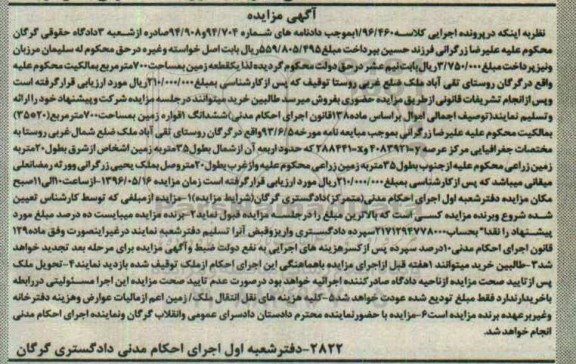 آگهی مزایده
نظریه اینکه درپرونده اجرایی کلاسه ۱/۹۶/۴۶۰بموجب دادنامه های شماره ۹۴/۷۰۴و۹۴/۹۰۸صادره ازشعبه ۳دادگاه حقوقی گرگان
محکوم علیه علیرضا زرگرانی فرزند حسین بپرداخت مبلغ۵۵۹/۸۰۵/۴۹۵ریال بابت اصل خواسته وغیره درحق محکوم له سلیمان مرزبان
ونیزپرداخت مبلغ۳/۷۵۰/۰۰۰ریال بابت نیم عشر درحق دولت محکوم گردیده لذا یکقطعه زمین بمساحت۷۰۰مترمربع بمالکیت محکوم علیه
واقع درگرگان روستای تقی آباد ملک ضلع غربی روستا توقیف که پس ازکارشناسی بمبلغ۲۱۰/۰۰۰/۰۰۰ریال مورد ارزیابی قرارگرفته است
وپس ازانجام تشریفات قانونی ازطریق مزایده حضوری بفروش میرسد.طالبین خرید میتوانند درجلسه مزایده شرکت وپیشنهاد خود را ارائه
وتسلیم نمایند(توصیف اجمالی اموال براساس ماده۱۳۸قانون اجرای احکام مدنی)ششدانگ ۱قواره زمین بمساحت۷۰۰مترمربع(۲۰*۳۵)
بمالکیت محکوم علیه علیرضا زرگرانی بموجب مبایعه نامه مورخه۹۳/۶/۵واقع درگرگان روستای تقی آباد ملک ضلع شمال غربی روستا به
مختصات جغرافیایی مرکز عرصه ۴۰۸۳۹۲۱۰y و۲۸۸۴۴۱۰x که حدود اربعه آن ازشمال بطول۳۵متربه زمین اشخاص ازشرق بطول۲۰متربه
زمین زراعی محکوم علیه ازجنوب بطول۳۵متربه زمین زراعی محکوم علیه وازغرب بطول۲۰متروصل بملک یحیی زرگرانی وورثه رمضانعلی
میقانی میباشد که پس ازکارشناسی بمبلغ۲۱۰/۰۰۰/۰۰۰ریال مورد ارزیابی قرارگرفته است زمان مزایده ۱۳۹۶/۰۵/۱۶-ازساعت۱۰الی۱۱صبح
مکان مزایده دفترشعبه اول اجرای احکام مدنی(متمرکز)دادگستری گرگان(شرایط مزایده)۱- مزایده ازمبلغی که توسط کارشناس تعیین
شده شروع وبرنده مزایده کسی است که بالاترین مبلغ را درجلسه مزایده قبول نماید۲-برنده مزایده میبایست ده درصد مبلغ مورد
پیشنهاد را نقدا" بحساب۲۱۷۱۲۹۴۷۷۸۰۰۰سپرده دادگستری واریزوقبض آنرا تسلیم دفترشعبه نمایند درغیراینصورت وفق ماده۱۲۹
قانون اجرای احکام مدنی ۱۰درصد سپرده پس ازکسرهزینه های اجرایی به نفع دولت ضبط وآگهی مزایده برای مرحله بعد تجدید خواهد
شد۳-طالبین خرید میتوانند ۱هفته قبل ازاجرای مزایده باهماهنگی این اجرای احکام ازملک توقیف شده بازدید نمایند۴-تحویل ملک
پس ازتایید صحت مزایده ازناحیه دادگاه صادرکننده اجرائیه خواهد بود درصورت عدم تایید صحت مزایده این اجرا مسئولیتی دررابطه
باخریدارندارد فقط مبلغ تودیع شده عودت خواهد شد۵-کلیه هزینه های نقل انتقال ملک/ زمین اعم ازمالیات عوارض وهزینه دفترخانه
وغیربرعهده برنده مزایده است۶-مزایده با حضورنماینده محترم دادستان دادسرای عمومی وانقلاب گرگان ونماینده اجرای احکام مدنی
انجام خواهد شد.
۲۸۲۲-دفترشعبه اول اجرای احکام مدنی دادگستری گرگان